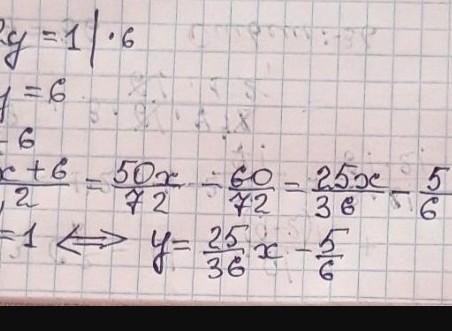 2y = 1 | · 6
y = 6
- 6
x + 6 / 2 = 50x / 72 - 60 / 72 = 25x / 36 - 5 / 6
= 1 ⟺ y = 25/36 x - 5/6